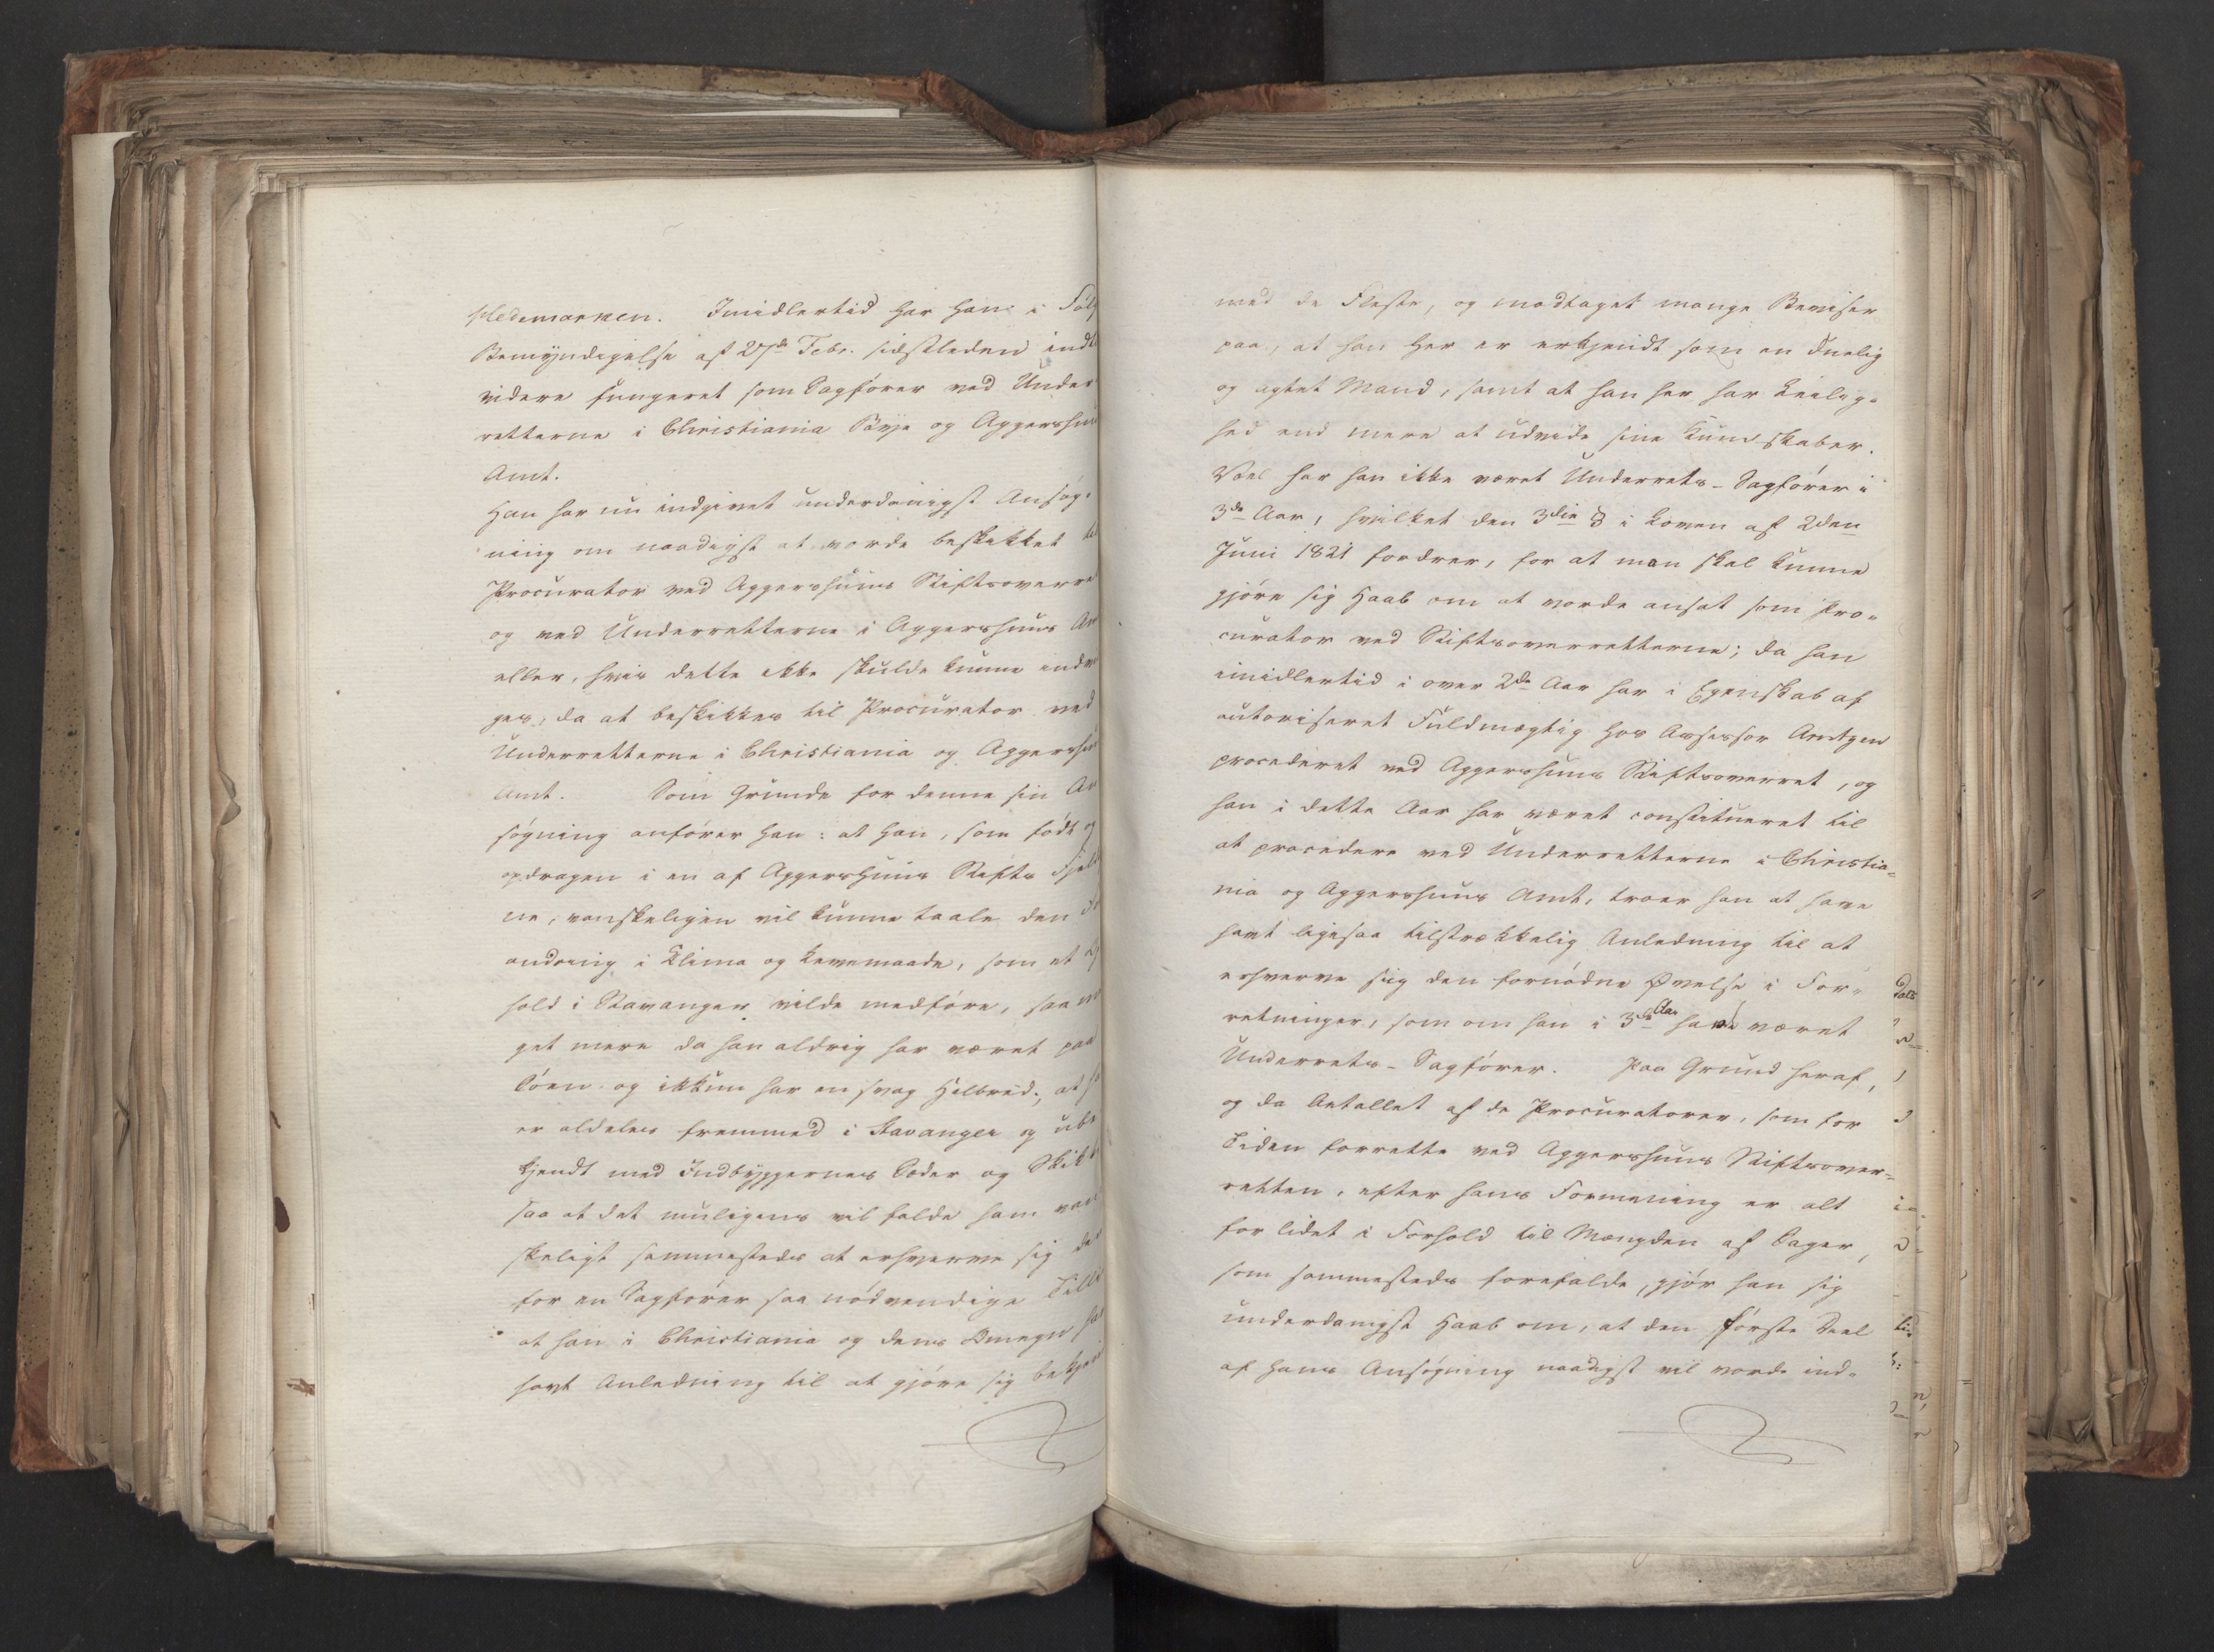 Hedemarken. Imidlertid har han i Følg
Bemyndigelse af 27de Febr. sidstleden indt
videre fungeret som Sagfører ved Under
retterne i Christiania Bye og Aggershuus
Amt.
Han har nu indgivet underdanigst Ansøg-
ning om naadigst at vorde beskikket til
Procurator ved Aggershuus Stiftsoverre
og ved Underretterne i Aggershuus Am
eller, hvis dette ikke skulde kunne indvil
ges, da at beskikkes til Procurator ved
Underretterne i Christiania og Aggershuus
Amt. Som Grunde for denne sin An
søgning anfører han: at han, som født og
opdragen i en af Aggershuus Stifts Fjeld
ne, vanskeligen vil kunne taale den For
andring i Klima og Levemaade, som et Op
hold i Stavanger vilde medføre, saa me
get mere da han aldrig har været paa
Søen og ikkun har en svag Helbred; at ha
er aldeles fremmed i Stavanger og ube
kjendt med Indbyggernes Sæder og Skikke
saa at det muligens vil falde ham van
skeligt sammesteds at erhverve sig den
for en Sagfører saa nødvendige Tillid
at han i Christiania og dens Omegn har
havt Anledning til at gjøre sig bekjendt
med de Fleste, og modtaget mange Beviser
paa, at han her er erkjendt som en duelig
og agtet Mand, samt at han her har Leilig-
hed end mere at udvide sine Kundskaber.
Vel har han ikke været Underrets-Sagfører i
3de Aar, hvilket den 3die § i Loven af 2den
Juni 1821 fordrer, for at man skal kunne
gjøre sig Haab om at vorde ansat som Pro-
curator ved Stiftsoverretterne; da han
imidlertid i over 2de Aar har i Egenskab af
autoriseret Fuldmægtig hos Assessor Arntzen
procederet ved Aggershuus Stiftsoverret, og
han i dette Aar har været constitueret til
at procedere ved Underretterne i Christia-
nia og Aggershuus Amt, troer han at have
havt ligesaa tilstrækkelig Anledning til at
erhverve sig den fornødne Øvelse i For-
retninger, som om han i 3de Aar havde været
Underrets-Sagfører. Paa Grund heraf,
og da Antallet af de Procuratorer, som for
Tiden forrette ved Aggershuus Stiftsover-
retten, efter hans Formening er alt
for lidet i Forhold til Mængden af Sager,
som sammesteds forefalde, gjør han sig
underdanigst Haab om, at den første Deel
af hans Ansøgning naadigst vil vorde ind-